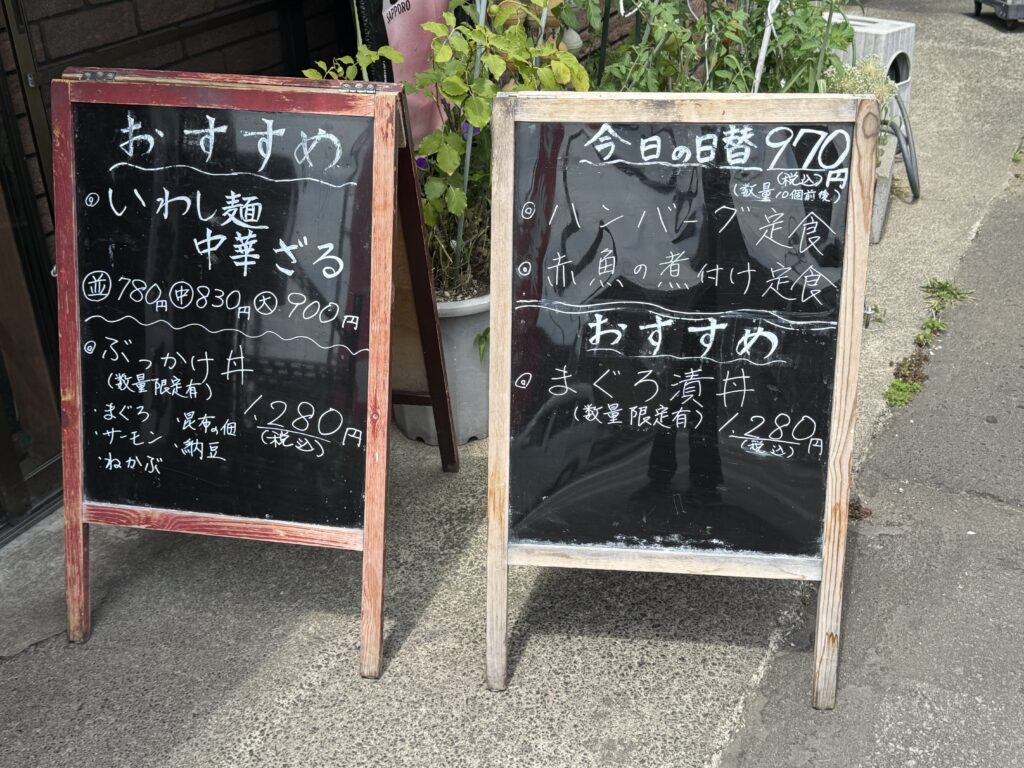 SAPPORO
おすすめ
◎いわし麺
中華ざる
並780円 中830円 大900円
◎ぶっかけ丼
(数量限定有)
・まぐろ ・昆布の佃
・サーモン ・納豆
・ねかぶ
1.280円
(税込)
今日の日替970円
(税込)
(数量10個前後)
◎ハンバーグ定食
◎赤魚の煮付け定食
おすすめ
◎まぐろ漬丼
(数量限定有) 1.280円
(税込)